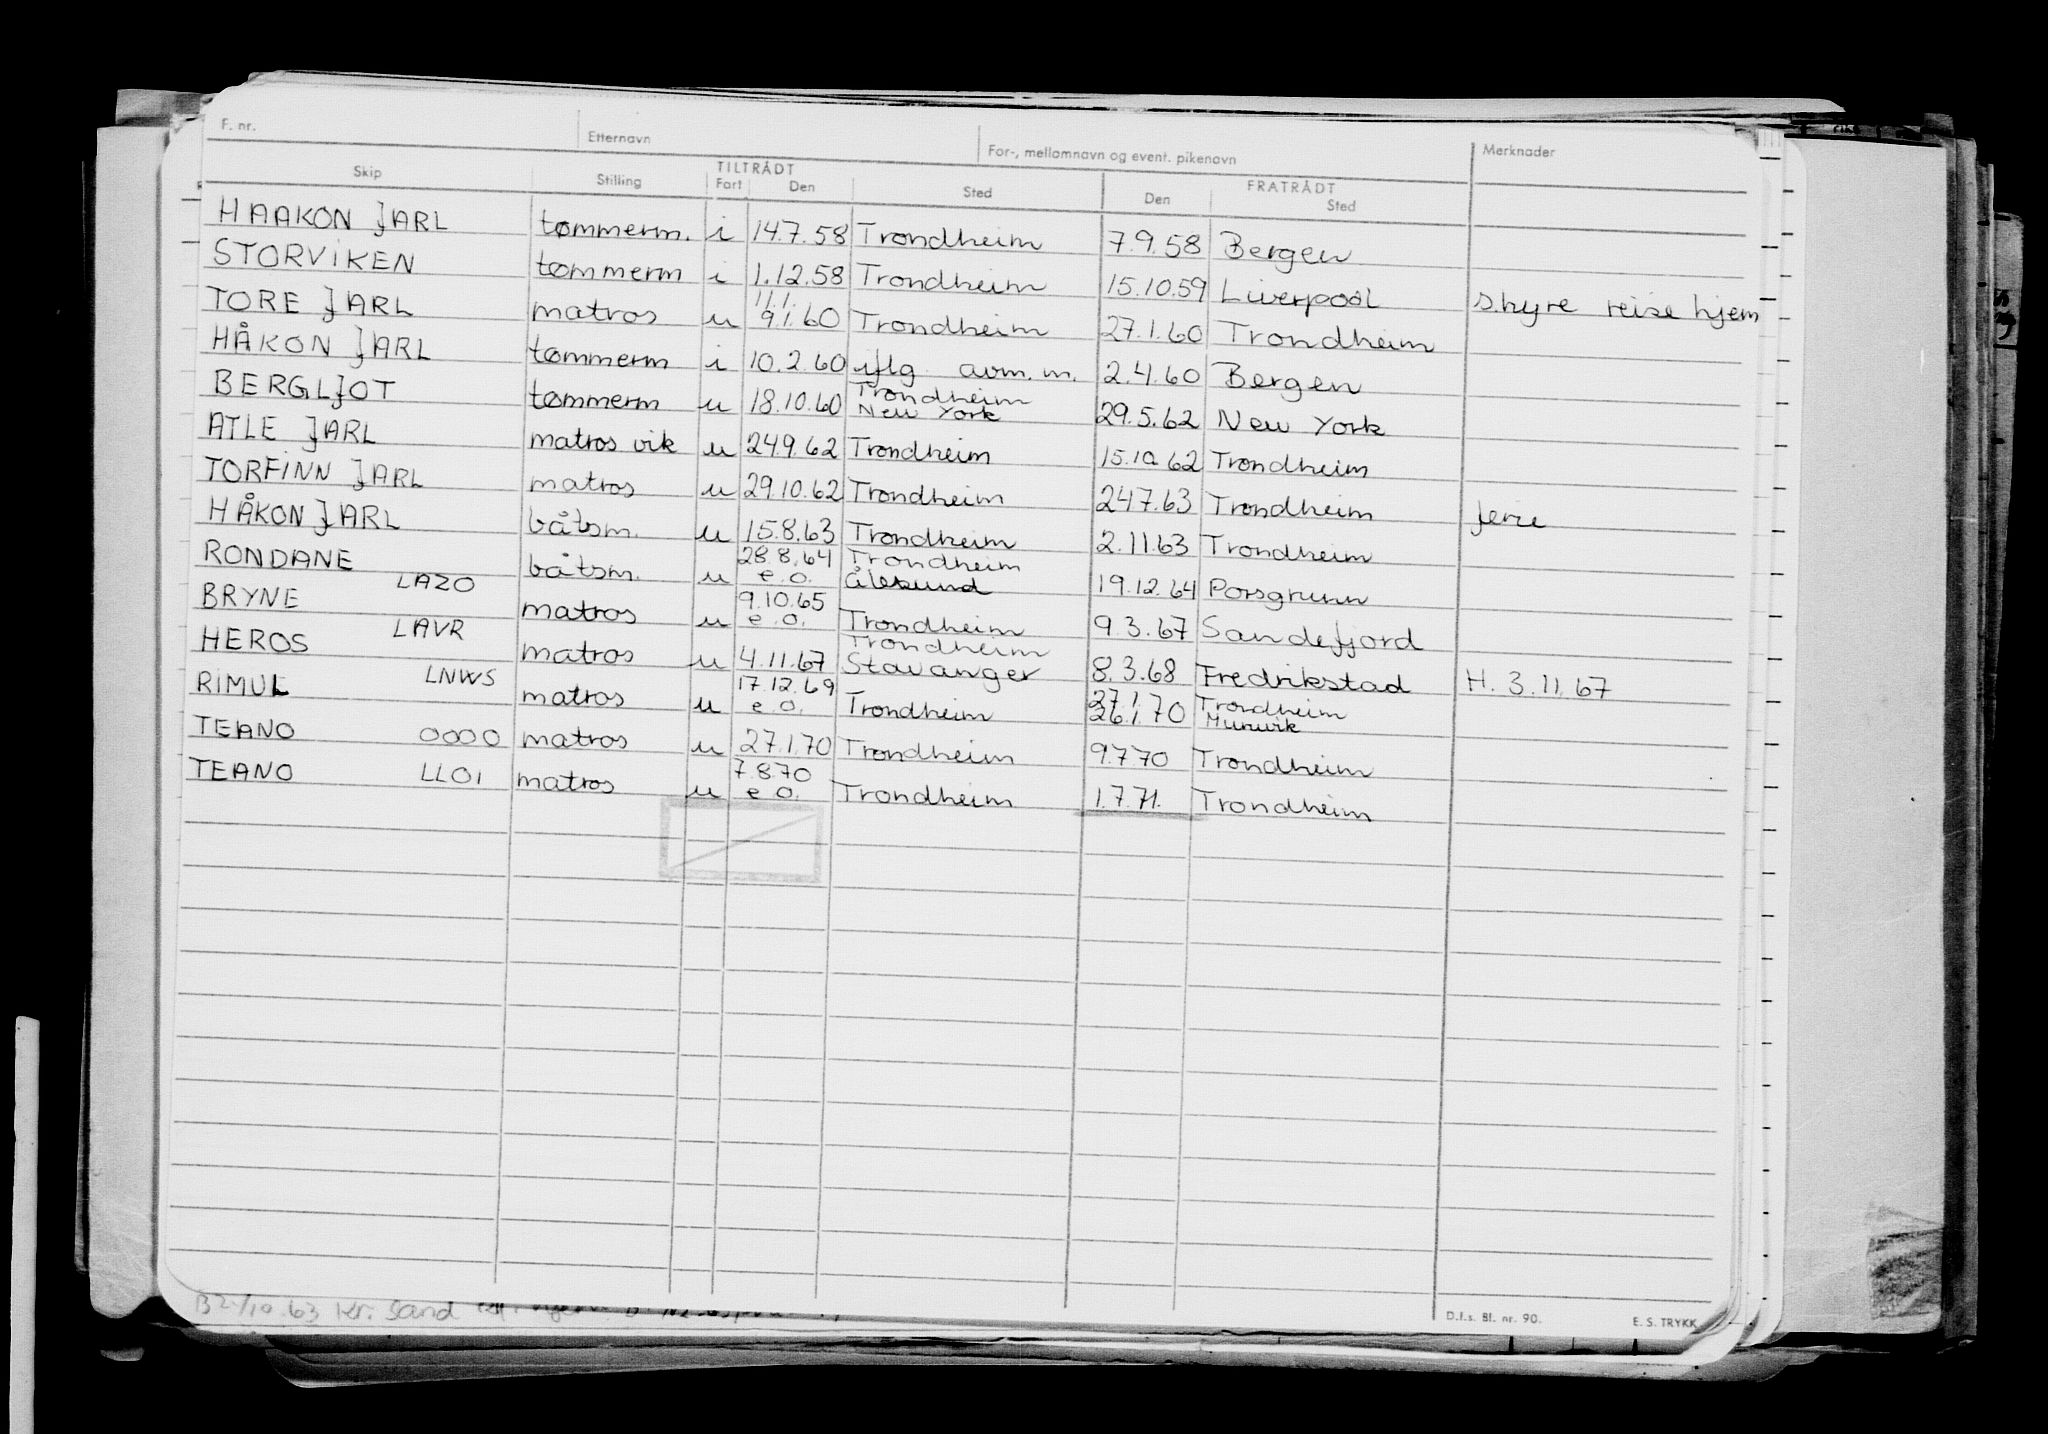 F. nr. Etternavn For-, mellomnavn og event. pikenavn Merknader
Skip Stilling TILTRÅDT Fart Den Sted FRATRÅDT Den Sted
HAAKON JARL tømmerm. i 14.7.58 Trondheim 7.9.58 Bergen
STORVIKEN tømmerm i 1.12.58 Trondheim 15.10.59 Liverpool skyre reise hjem
11.1.
TORE JARL matros u 9.1.60 Trondheim 27.1.60 Trondheim
HÅKON JARL tømmerm i 10.2.60 iflg. avm. m. 2.4.60 Bergen
Trondheim
BERGLJOT tømmerm u 18.10.60 New York 29.5.62 New York
ATLE JARL matros vik u 24.9.62 Trondheim 15.10.62 Trondheim
TORFINN JARL matros u 29.10.62 Trondheim 24.7.63 Trondheim ferie
HÅKON JARL båtsm. u 15.8.63 Trondheim 2.11.63 Trondheim
28.8.64 Trondheim
RONDANE båtsm. u e.o. Ålesund 19.12.64 Porsgrunn
LAZO 9.10.65
BRYNE matros u e.o. Trondheim 9.3.67 Sandefjord
LAVR Trondheim
HEROS matros u 4.11.67 Stavanger 8.3.68 Fredrikstad H. 3.11.67
LNWS 17.12.69 27.1 Trondheim
RIMUL matros u e.o. Trondheim 26.1.70 Muruvik
TEANO OOOO matros u 27.1.70 Trondheim 9.7.70 Trondheim
7.8.70
TEANO LLOI matros u e.o. Trondheim 1.7.71. Trondheim
10.63 Kr. Sand
D.f.s. Bl. nr. 90. E. S. TRYKK